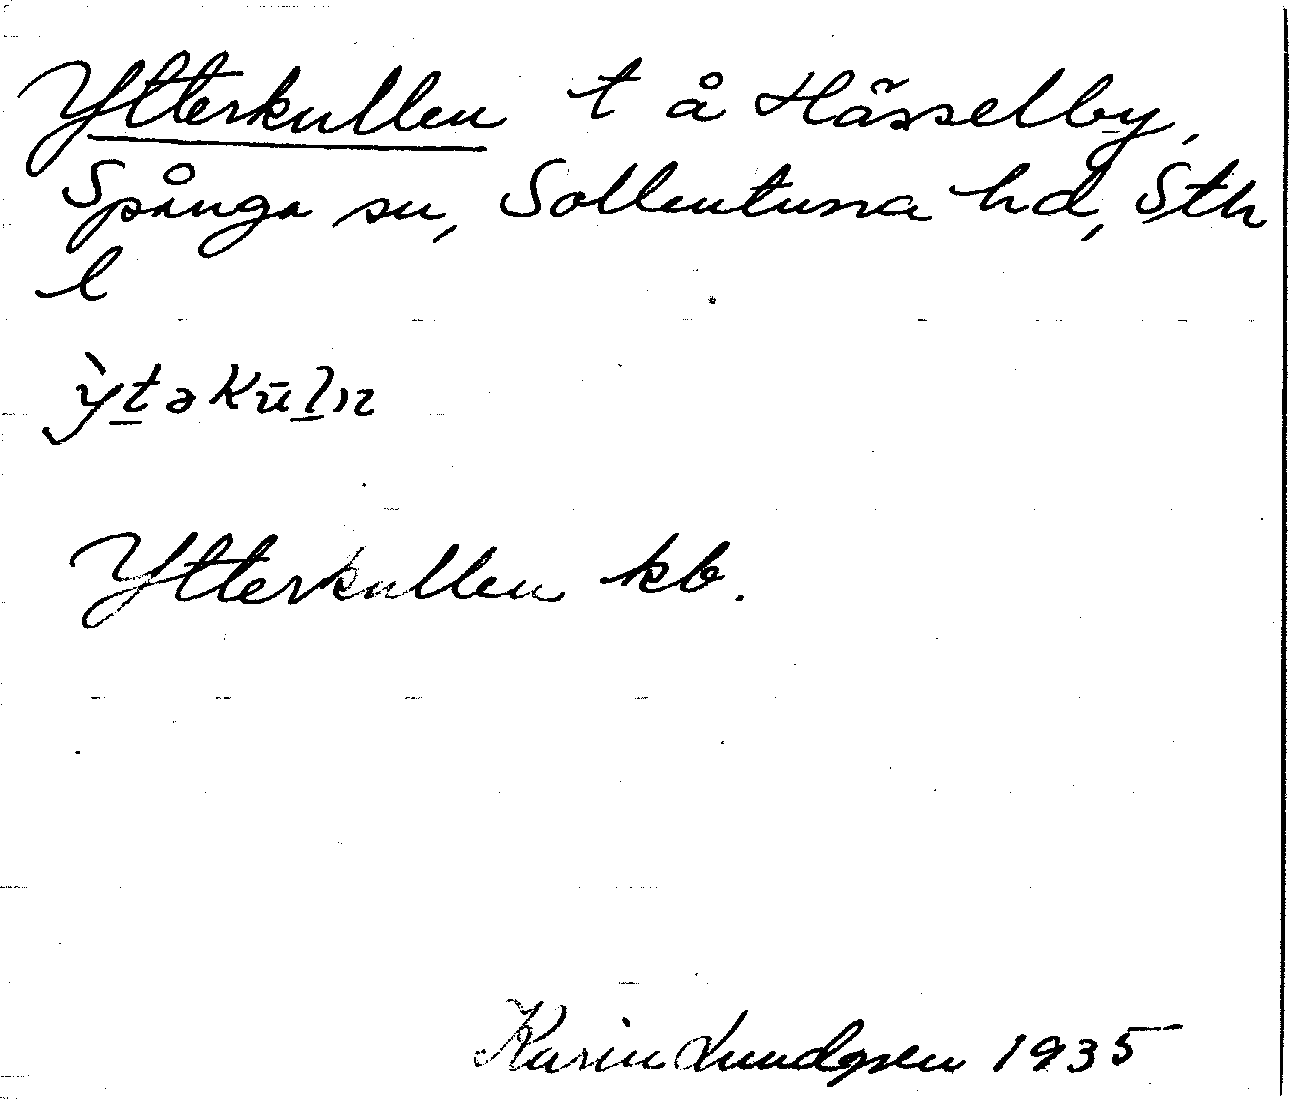 Ytterkullen t å Hässelby,
Spånga sn, Sollentuna hd, Sth
l
ỳt̲əkūl̲n
Ytterkullen kb.
Karin Lundgren 1935